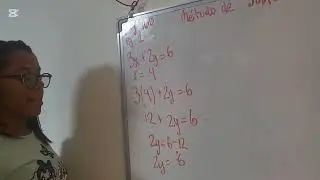 Método de
3x + 2y = 6
x = 4
3(4) + 2y = 6
12 + 2y = 6
2y = 6 - 12
2y = -6